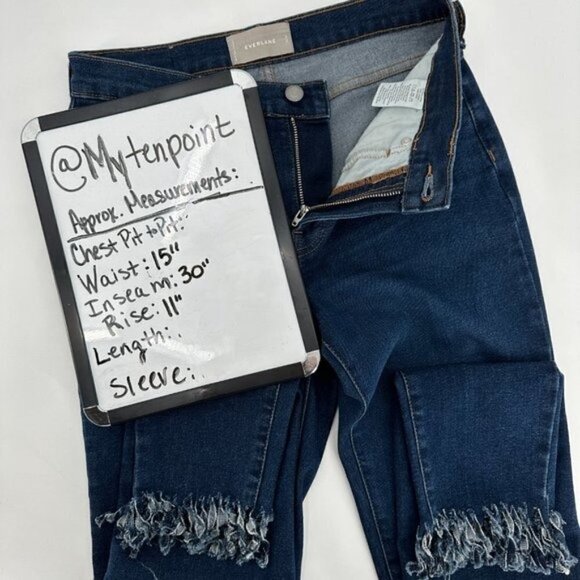 EVERLANE
@Mytenpoint
Approx. Measurements:
Chest Pit to Pit:
Waist: 15"
Inseam: 30"
Rise: 11"
Length:
Sleeve: